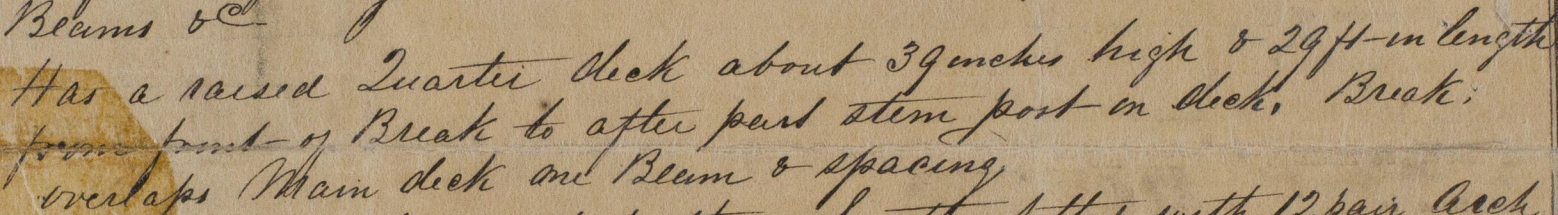 Beams &c
Has a raised Quarter deck about 39 inches high & 29 ft in length
from front of Break to after part stern post on deck. Break
overlaps Main deck one Beam & spacing
with 12 pair Arch